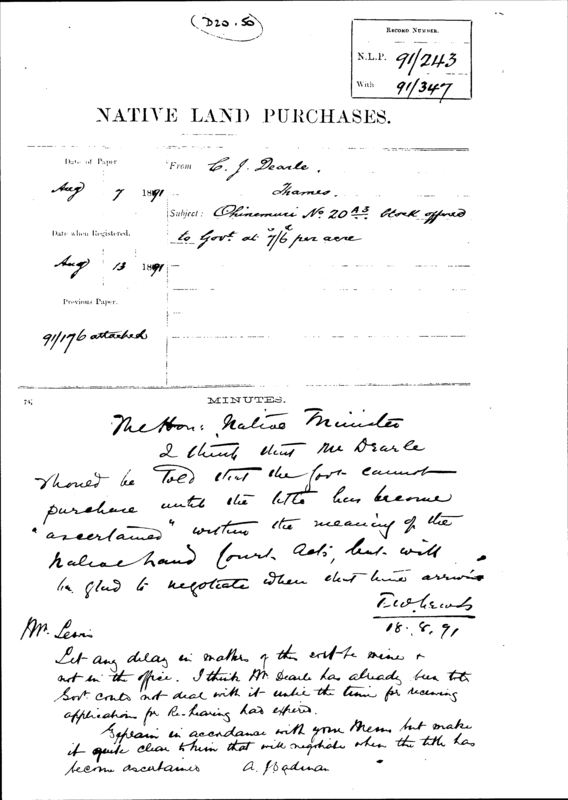 (D20.50)
RECORD NUMBER.
N.L.P. 91/243
With 91/347
NATIVE LAND PURCHASES.
Date of Paper
Aug 7 1891
Date when Registered.
Aug 13 1891
Previous Paper.
91/176 attached
From C. J. Dearle.
Thames.
Subject: Ohinemuri No 20 A3 block offered
to Govt. at 7s/6d per acre
MINUTES.
The Hon: Native Minister
I think that Mr Dearle
should be told that the Govt cannot
purchase until the title has become
"ascertained" within the meaning of the
Native Land Court Act, but will
be glad to negotiate when that time arrives
T.W. Lewis
18.8.91
Mr. Lewis
Let any delay in matters of this sort be mine &
not in the office. I think Mr Dearle has already been told
Govt could not deal with it until the time for receiving
applications for Re-hearing had expired.
Explain in accordance with your Memo but make
it quite clear to him that will negotiate when the title has
become ascertained A. J Cadman